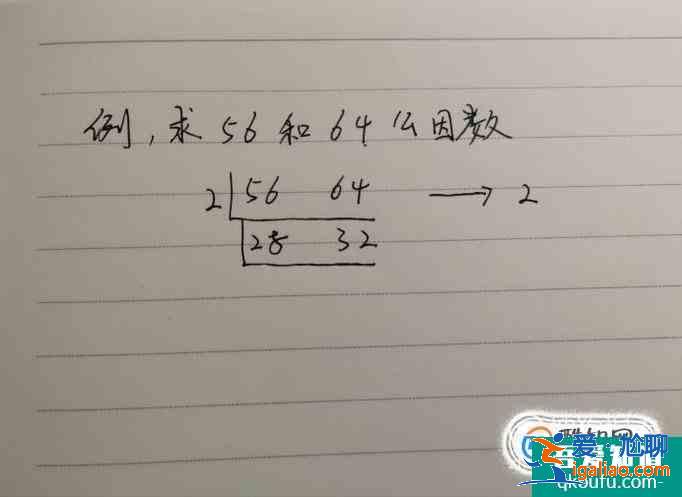 例，求 56 和 64 公因数
2 56 64 → 2
28 32
爱·尬聊
igaliao.com
qk9ufu.com-